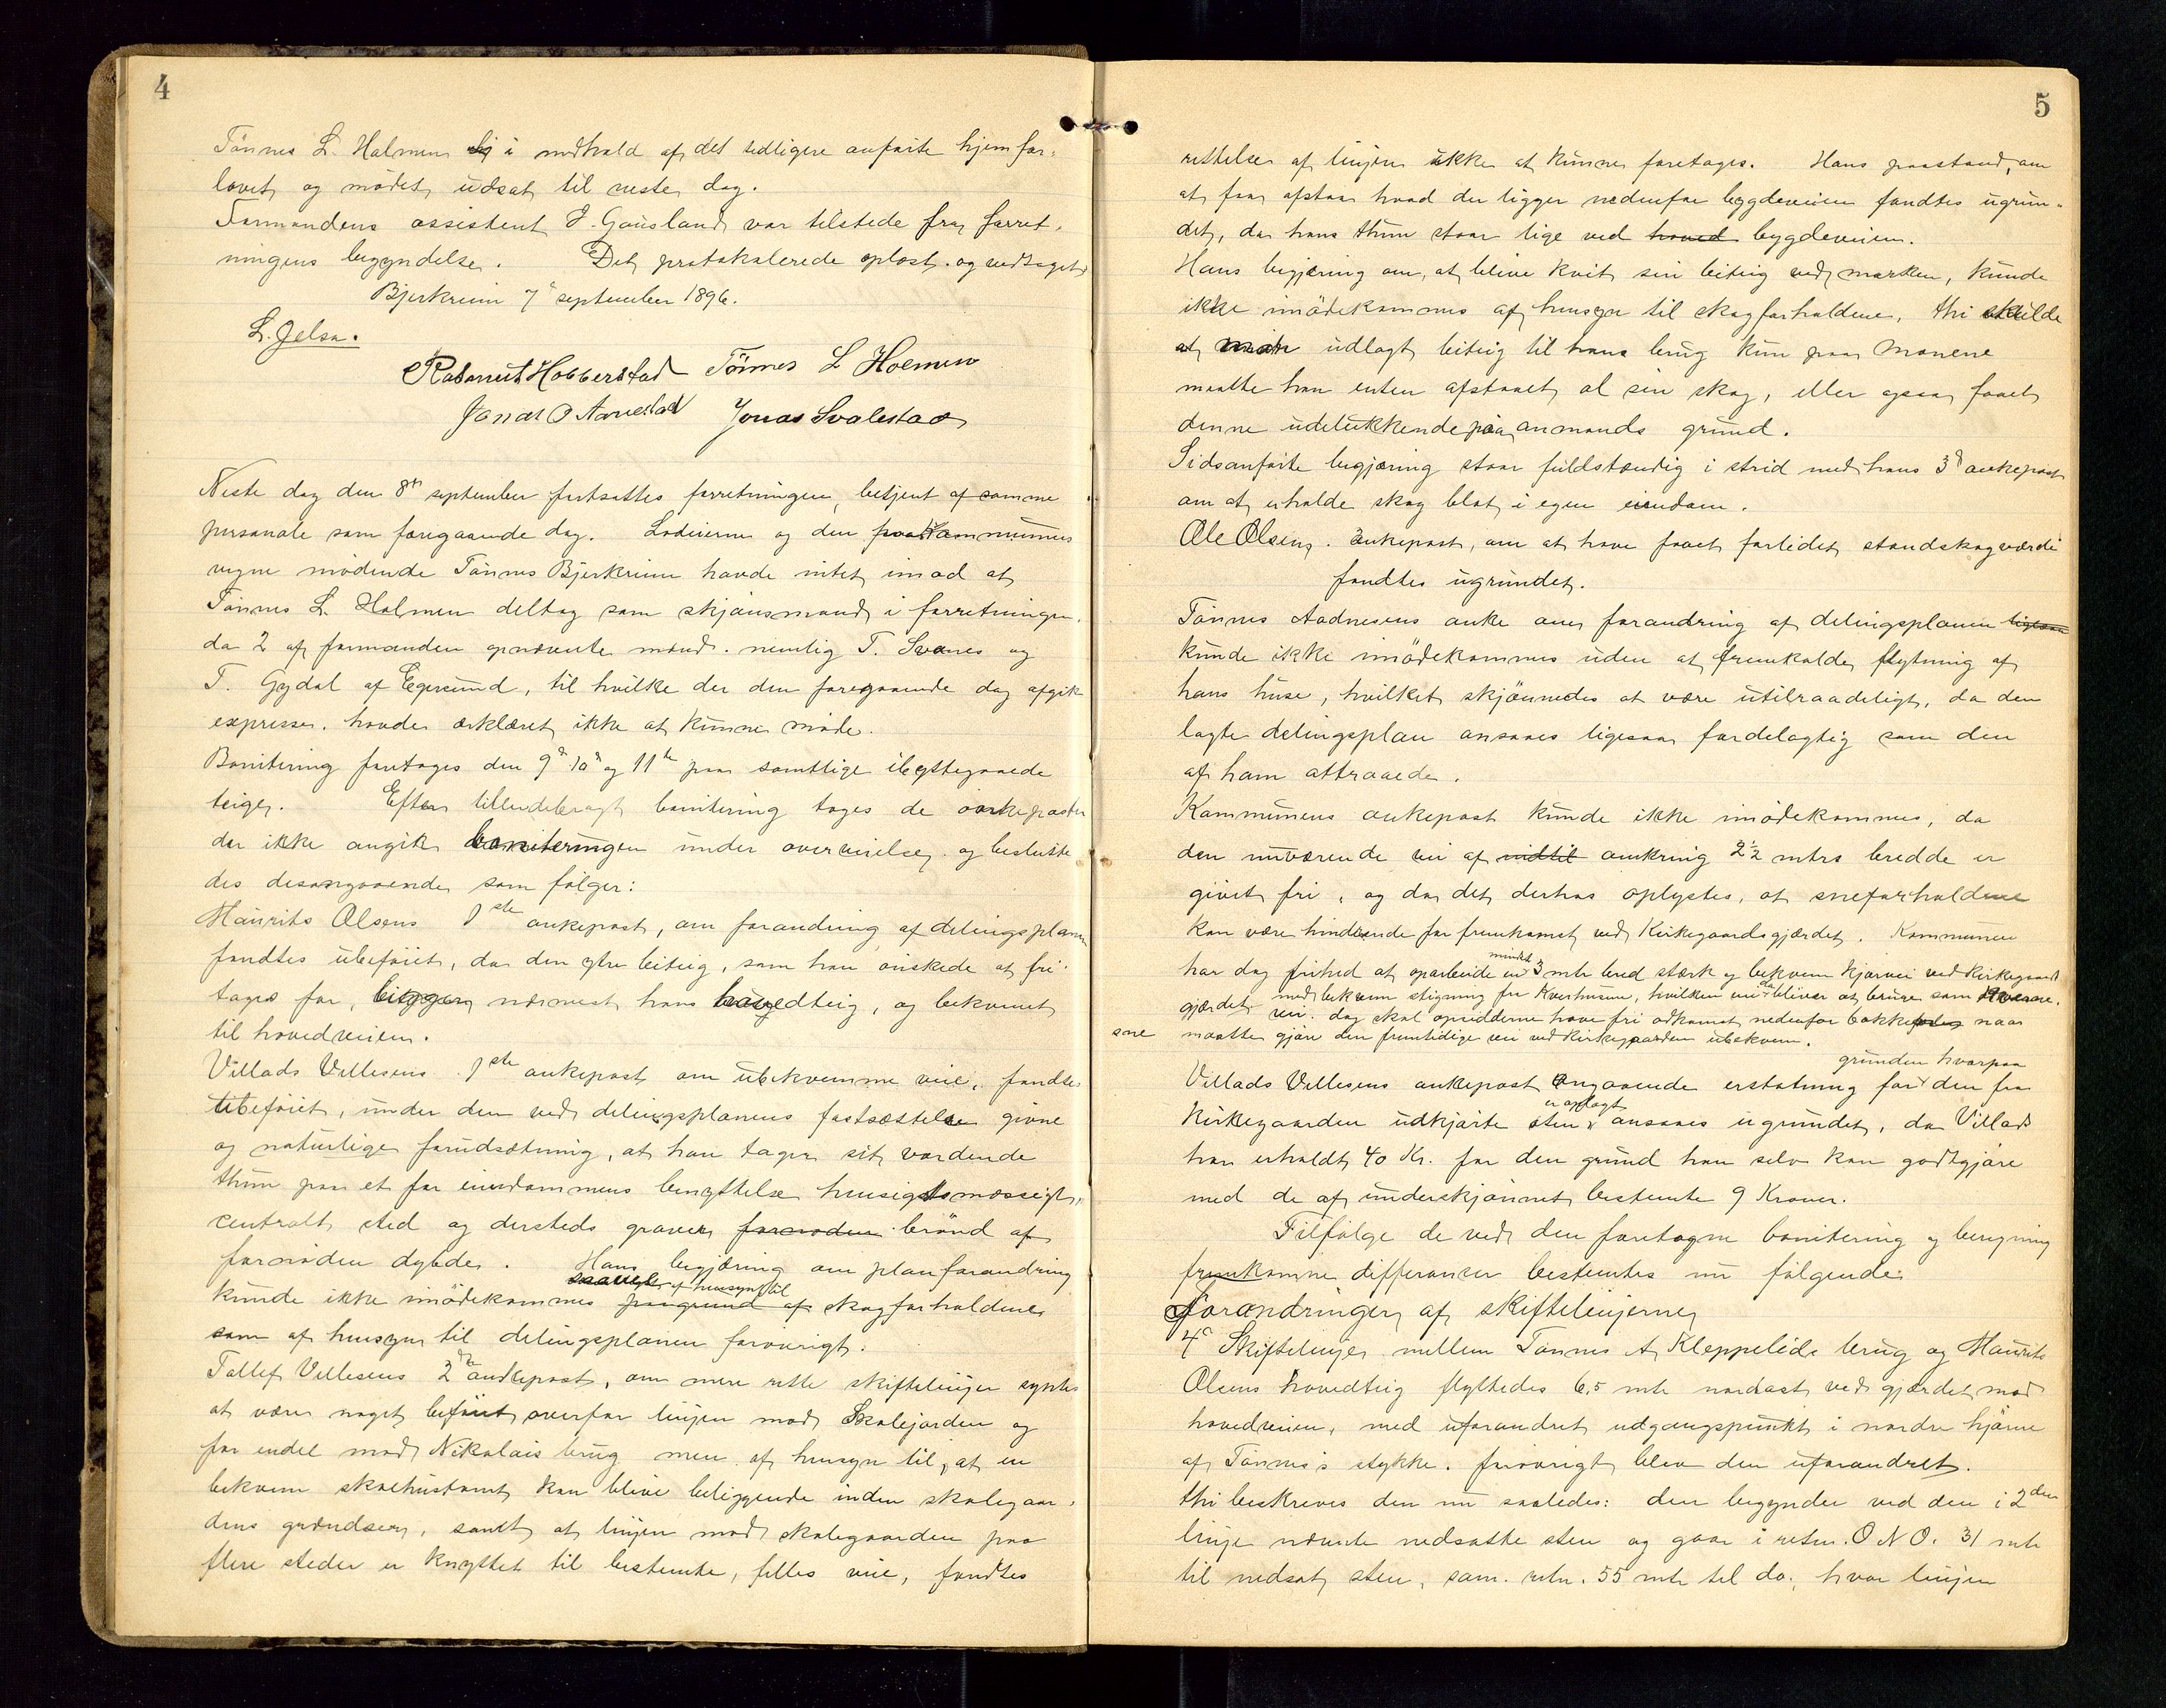 4
Tönnes L. Holmen i medhold af det tidligere anførte hjemfor-
lovet og mödet udsat til neste dag.
Formandens assistent J. Gausland var tilstede fra forret-
ningens begyndelse. Det protokolerede oplæst og vedtaget
Bjerkreim 7de september 1896.
L. Jelsa.
Rasmus Hobberstad Tönnes L Holmen
Jonas O Aarrestad Jonas Svalestad
Neste dag den 8de september fortsattes forretningen, betjent af samme
personale som foregaaende dag. Lodeierne og den paa kommunens
vegne mødende Tönnes Bjerkreim havde intet imod at
Tönnes L. Holmen deltog som skjönsmand i forretningen,
da 2 af formanden opnævnte mænd, nemlig T. Svanes og
T. Gydal af Egersund, til hvilke der den foregaaende dag afgik
expresse, havde erklæret ikke at kunne møde.
Bonitering foretoges den 9de 10de og 11te paa samtlige ibyttegaaede
teiger. Efter tilendebragt bonitering toges de ankeposter
der ikke angik boniteringen under overveielse og beslutte-
des desangaaende som følger:
Maurits Olsens 1ste ankepost, om forandring af delingsplanen
fandtes ubeføiet, da den ytre beiteig, som han önskede at fri-
tages for, ligger nærmest hans hovedteig, og bekvemt
til hovedveien.
Villads Villesens 1ste ankepost om ubekvemme veie, fandtes
ubeføiet, under den ved delingsplanens fastsættelse givne
og naturlige forudsætning, at han tager sit vordende
thun paa et for eiendommens benyttelse hensigtsmæssigt,
centralt sted og dersteds graver fornøden brönd af
fornøden dybde. Hans begjæring om planforandring
saavel af hensyn til
kunde ikke imödekommes paa grund af skogforholdene
som af hensyn til delingsplanen forøvrigt.
Tollef Villesens 2den ankepost, om mere rette skiftelinjer syntes
at være noget beføiet overfor linjen mod Skolejorden og
for endel mod Nikolais brug men af hensyn til, at en
bekvem skolehustomt kan blive beliggende inden skolegaar-
dens grændser, samt at linjen mod skolegaarden paa
flere steder er knyttet til bestemte, fælles veie, fandtes
5
rettelser af linjen ikke at kunne foretages. Hans paastand, om
at faa afstaa hvad der ligger nedenfor bygdeveien fandtes ugrun-
det, da hans thun staar lige ved hoved bygdeveien.
Hans begjæring om, at blive kvit sin beiteig ved marken, kunde
ikke imödekommes af hensyn til skogforholdene, thi skulde
at udlagt beiteig til hans brug kun paa Monene
maatte han enten afstaaet al sin skog, eller ogsaa faaet
denne udelukkende paa anmands grund.
Sidsanførte begjæring staar fuldstændig i strid med hans 3de ankepost
om at erholde skog blot i egen eiendom.
Ole Olsens ankepost, om at have faaet forlidet standskogværdi
fandtes ugrundet.
Tönnes Aadnesens anke om forandring af delingsplanen ligesaa
kunde ikke imödekommes uden at fremkalde flytning af
hans huse, hvilket skjönnedes at være utilraadeligt, da den
lagte delingsplan ansaaes ligesaa fordelagtig som den
af ham attraaede.
Kommunens ankepost kunde ikke imödekommes, da
den nuværende vei af indtil omkring 2½ mtrs bredde er
givet fri, og da det derhos oplystes, at sneforholdene
kan være hindrende for fremkomst ved Kirkegaardsgjærdet. Kommunen
mindst
har dog frihed at oparbeide en 3 mtr bred stærk og bekvem kjørevei ved Kirkegaards
gjærdet med bekvem stigning fra Kverhusene, hvilken vei da bliver at bruge som
vei. dog skal opsidderne have fri adkomst nedenfor bakke naar
sne maatte gjøre den fremtidige vei ved Kirkegaarden ubekvem.
grunden hvorpaa
Villads Villesens ankepost angaaende erstatning for den fra
er oplagt
Kirkegaarden udkjörte sten ansaaes ugrundet, da Villads
har erholdt 40 Kr. for den grund han selv kan godtgjøre
med de af underskjönnet bestemte 9 Kroner.
Tilfølge de ved den foretagne bonitering og beregning
fremkomne differancer bestemtes nu følgende
Forandringer af skiftelinjerne
4de Skiftelinje mellem Tönnes A Kleppelids brug og Maurits
Olsens hovedteig flyttedes 6,5 mtr nordost ved gjærdet mod
hovedveien, med uforandret udgangspunkt i nordre hjørne
af Tönnes's stykke. forøvrigt blev den uforandret.
thi beskrives den nu saaledes: den begynder ved den i 2den
linje nævnte nedsatte sten og gaar i retn. O N O. 31 mtr
til nedsat sten, sam. retn. 55 mtr til do., hvor linjen